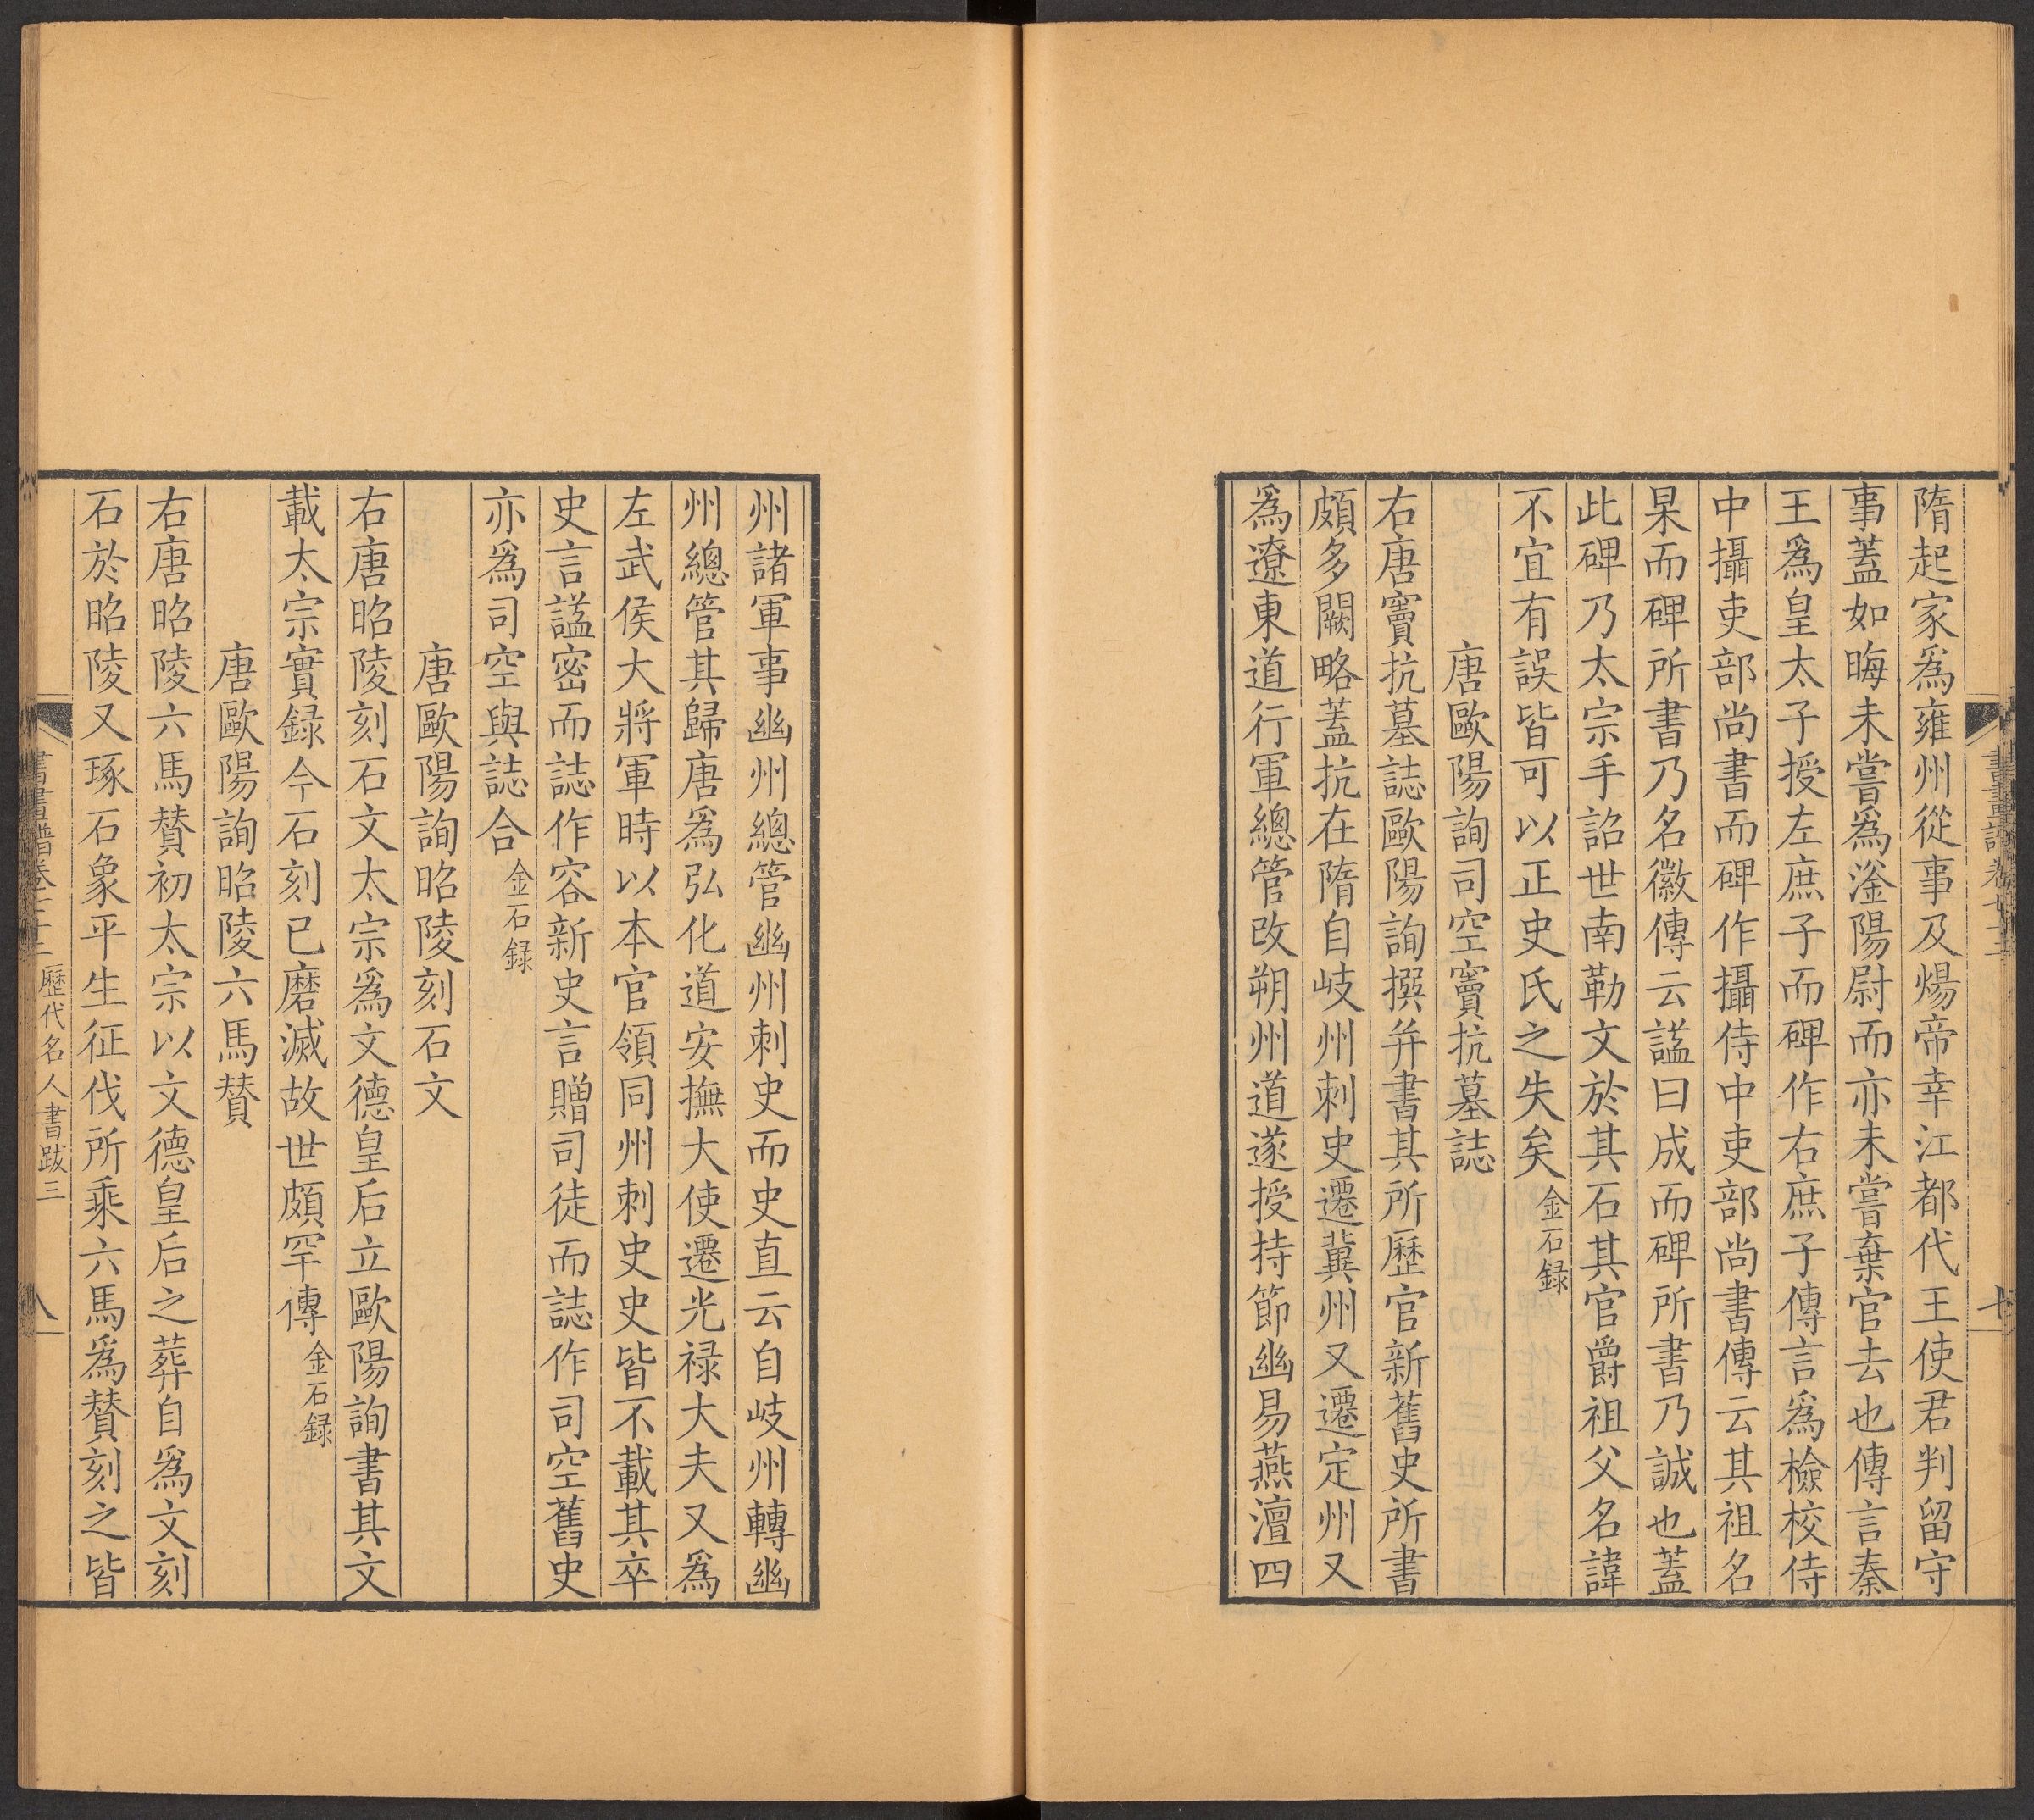 隋起家爲雍州從事及煬帝幸江都代王使君判留守
事蓋如晦未嘗爲滏陽尉而亦未嘗棄官去也傳言秦
王爲皇太子授左庶子而碑作右庶子傳言爲檢校侍
中攝吏部尚書而碑作攝侍中吏部尚書傳云其祖名
杲而碑所書乃名徽傳云謚曰成而碑所書乃誠也蓋
此碑乃太宗手詔世南勒文於其石其官爵祖父名諱
不宜有誤皆可以正史氏之失矣金石録
唐歐陽詢司空竇抗墓誌
右唐竇抗墓誌歐陽詢撰并書其所歷官新舊史所書
頗多闕略蓋抗在隋自岐州刺史遷冀州又遷定州又
爲遼東道行軍總管改朔州道遂授持節幽易燕澶四
州諸軍事幽州總管幽州刺史而史直云自岐州轉幽
州總管其歸唐爲弘化道安撫大使遷光禄大夫又爲
左武侯大將軍時以本官領同州刺史史皆不載其卒
史言謚密而誌作容新史言贈司徒而誌作司空舊史
亦爲司空與誌合金石録
唐歐陽詢昭陵刻石文
右唐昭陵刻石文太宗爲文德皇后立歐陽詢書其文
載太宗實録今石刻已磨滅故世頗罕傳金石録
唐歐陽詢昭陵六馬贊
右唐昭陵六馬贊初太宗以文德皇后之葬自爲文刻
石於昭陵又琢石象平生征伐所乘六馬爲贊刻之皆
書畫譜卷七十二 歷代名人書跋三 八